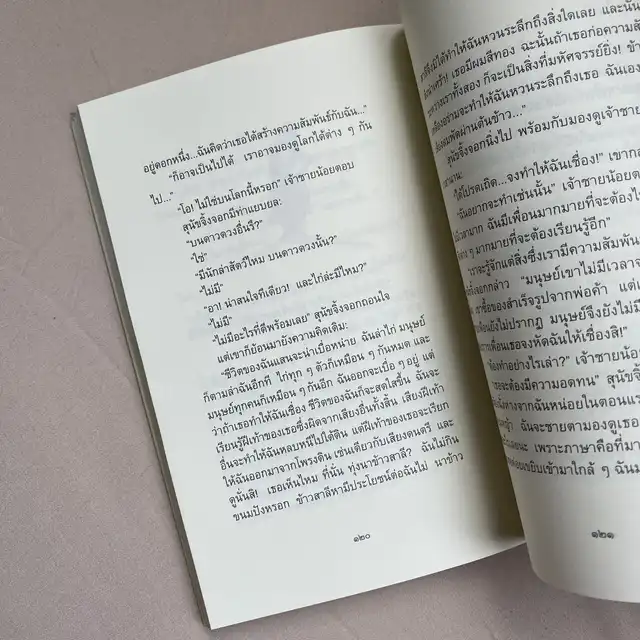 อยู่ดอกหนึ่ง...ฉันคิดว่าเธอได้สร้างความสัมพันธ์กับฉัน..."
"ก็อาจเป็นไปได้ เราอาจมองดูโลกได้ต่าง ๆ กัน
ไป..."
"โอ! ไม่ใช่บนโลกนี้หรอก" เจ้าชายน้อยตอบ
สุนัขจิ้งจอกมีท่าแยบยล:
"บนดาวดวงอื่นรึ?"
"ใช่"
"มีนักล่าสัตว์ไหม บนดาวดวงนั้น?"
"ไม่มี"
"อา! น่าสนใจทีเดียว! และไก่ล่ะมีไหม?"
"ไม่มี"
"ไม่มีอะไรที่ดีพร้อมเลย" สุนัขจิ้งจอกถอนใจ
แต่เขาก็ย้อนมายังความคิดเดิม:
"ชีวิตของฉันแสนจะน่าเบื่อหน่าย ฉันล่าไก่ มนุษย์
ก็ตามล่าฉันอีกที ไก่ทุก ๆ ตัวก็เหมือน ๆ กันหมด และ
มนุษย์ทุกคนก็เหมือน ๆ กันอีก ฉันออกจะเบื่อ ๆ อยู่ แต่
ว่าถ้าเธอทำให้ฉันเชื่อง ชีวิตของฉันก็จะสดใสขึ้น ฉันจะ
เรียนรู้ฝีเท้าของเธอซึ่งผิดจากเสียงอื่นทั้งสิ้น เสียงฝีเท้า
อื่นจะทำให้ฉันหลบหนีไปใต้ดิน แต่ฝีเท้าของเธอจะเรียก
ให้ฉันออกมาจากโพรงดิน เช่นเดียวกับเสียงดนตรี และ
ดูนั่นสิ! เธอเห็นไหม ที่นั่น ทุ่งนาข้าวสาลี? ฉันไม่กิน
ขนมปังหรอก ข้าวสาลีหามีประโยชน์ต่อฉันไม่ นาข้าว
๑๒๐
ทำให้ฉันหวนระลึกถึงสิ่งใดเลย และนั่น
น่าเศร้า! เธอมีผมสีทอง ฉะนั้นถ้าเธอก่อความสัม
เราทั้งสอง ก็จะเป็นสิ่งที่มหัศจรรย์ยิ่ง! ข้า
จะทำให้ฉันหวนระลึกถึงเธอ ฉันเอง
พัดผ่านต้นข้าว..."
สุนัขจิ้งจอกนิ่งไป พร้อมกับมองดูเจ้าชาย
นาน:
"ได้โปรดเถิด...จงทำให้ฉันเชื่อง!" เขากล่าว
"ฉันอยากจะทำเช่นนั้น" เจ้าชายน้อยต
เวลามาก ฉันมีเพื่อนมากมายที่จะต้อง
ต่าง ๆ มากมายที่จะต้องเรียนรู้อีก"
"เราจะรู้จักแต่สิ่งซึ่งเรามีความสัมพัน
จิ้งจอกกล่าว "มนุษย์เขาไม่มีเวลา
เขาซื้อของสำเร็จรูปจากพ่อค้า แต่
เพื่อนยังไม่ปรากฏ มนุษย์จึงยังไม่มี
เพื่อนเธอจงหัดฉันให้เชื่องสิ!"
"ต้องทำอย่างไรเล่า?" เจ้าชายน้อ
"เธอจะต้องมีความอดทน" สุนัข
ห่างจากฉันหน่อยในตอนแร
ฉันจะชายตามองดูเธอ
เลยนะ เพราะภาษาคือที่มา
ค่อยเขยิบเข้ามาใกล้ ๆ ฉันม
๑๒๑